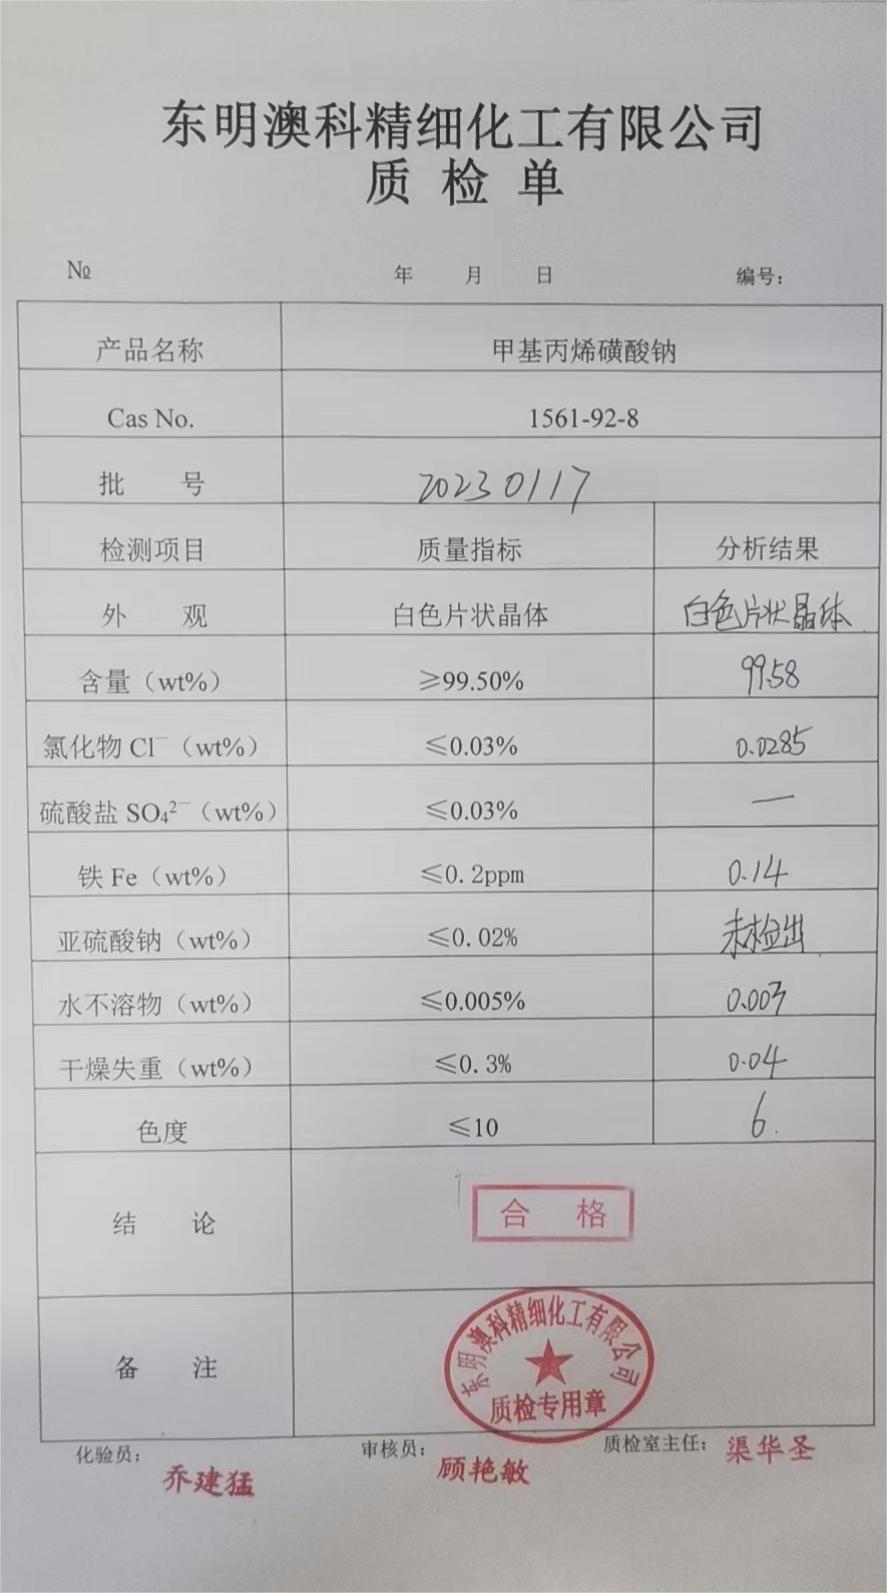 东明澳科精细化工有限公司
质 检 单
№ 年 月 日 编号：
产品名称 甲基丙烯磺酸钠
Cas No. 1561-92-8
批 号 20230117
检测项目 质量指标 分析结果
外 观 白色片状晶体 白色片状晶体
含量（wt%） ≥99.50% 99.58
氯化物 Cl⁻（wt%） ≤0.03% 0.0285
硫酸盐 SO₄²⁻（wt%） ≤0.03% —
铁 Fe（wt%） ≤0.2ppm 0.14
亚硫酸钠（wt%） ≤0.02% 未检出
水不溶物（wt%） ≤0.005% 0.003
干燥失重（wt%） ≤0.3% 0.04
色度 ≤10 6.
结 论 合 格
备 注
东明澳科精细化工有限公司
质检专用章
化验员： 乔建猛 审核员： 顾艳敏 质检室主任： 渠华圣